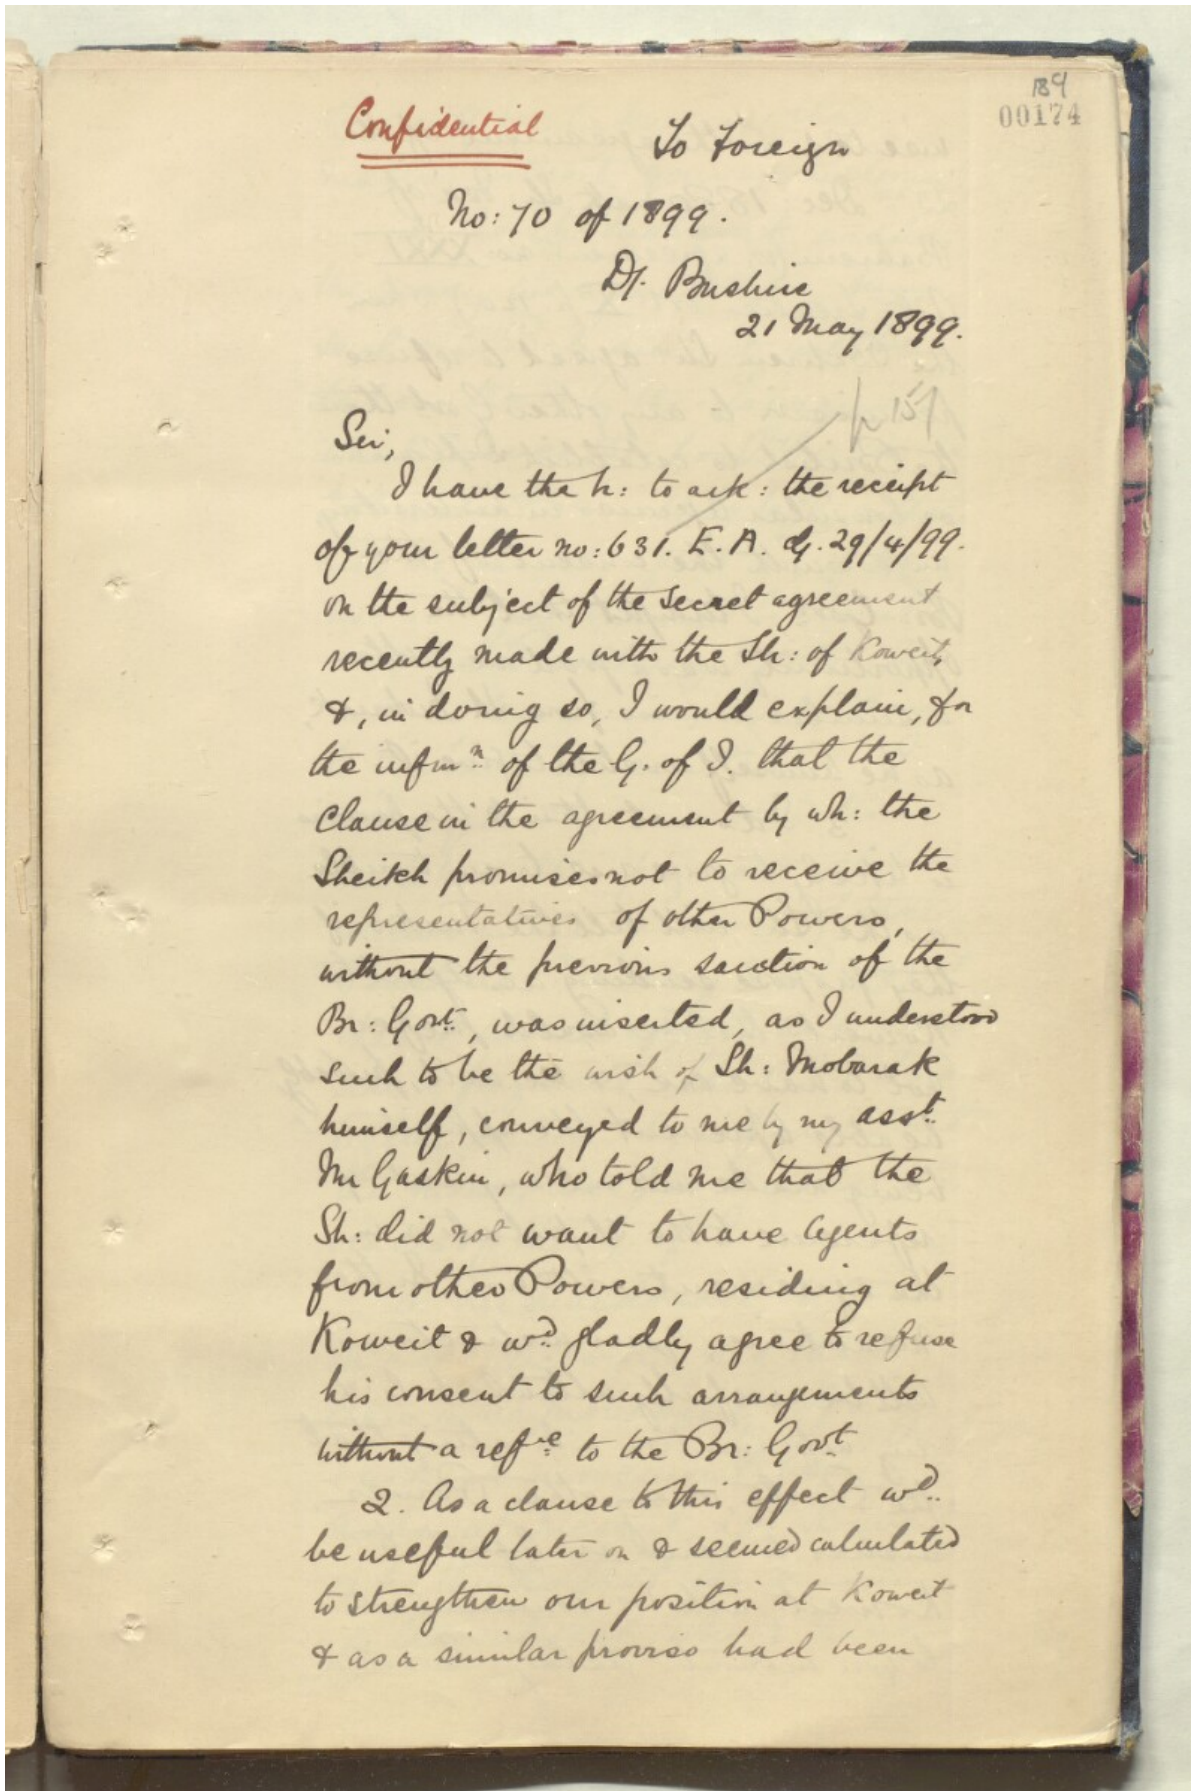 189
00174
Confidential
To Foreign
No: 70 of 1899.
D/. Bushire
21 May 1899.
p 151
Sir,
I have the h: to ack: the receipt
of your letter no: 631. E. A. d/. 29/4/99.
on the subject of the secret agreement
recently made with the Sh: of Koweit,
&, in doing so, I would explain, for
the infmn of the G. of I. that the
clause in the agreement by wh: the
Sheikh promises not to receive the
representatives of other Powers,
without the previous sanction of the
Br: Govt., was inserted, as I understood
such to be the wish of Sh: Mobarak
himself, conveyed to me by my asst.
Mr Gaskin, who told me that the
Sh: did not want to have Agents
from other Powers, residing at
Koweit & wd. gladly agree to refuse
his consent to such arrangements
without a refce to the Br: Govt.
2. As a clause to this effect wd.
be useful later on & seemed calculated
to strengthen our position at Koweit
& as a similar proviso had been